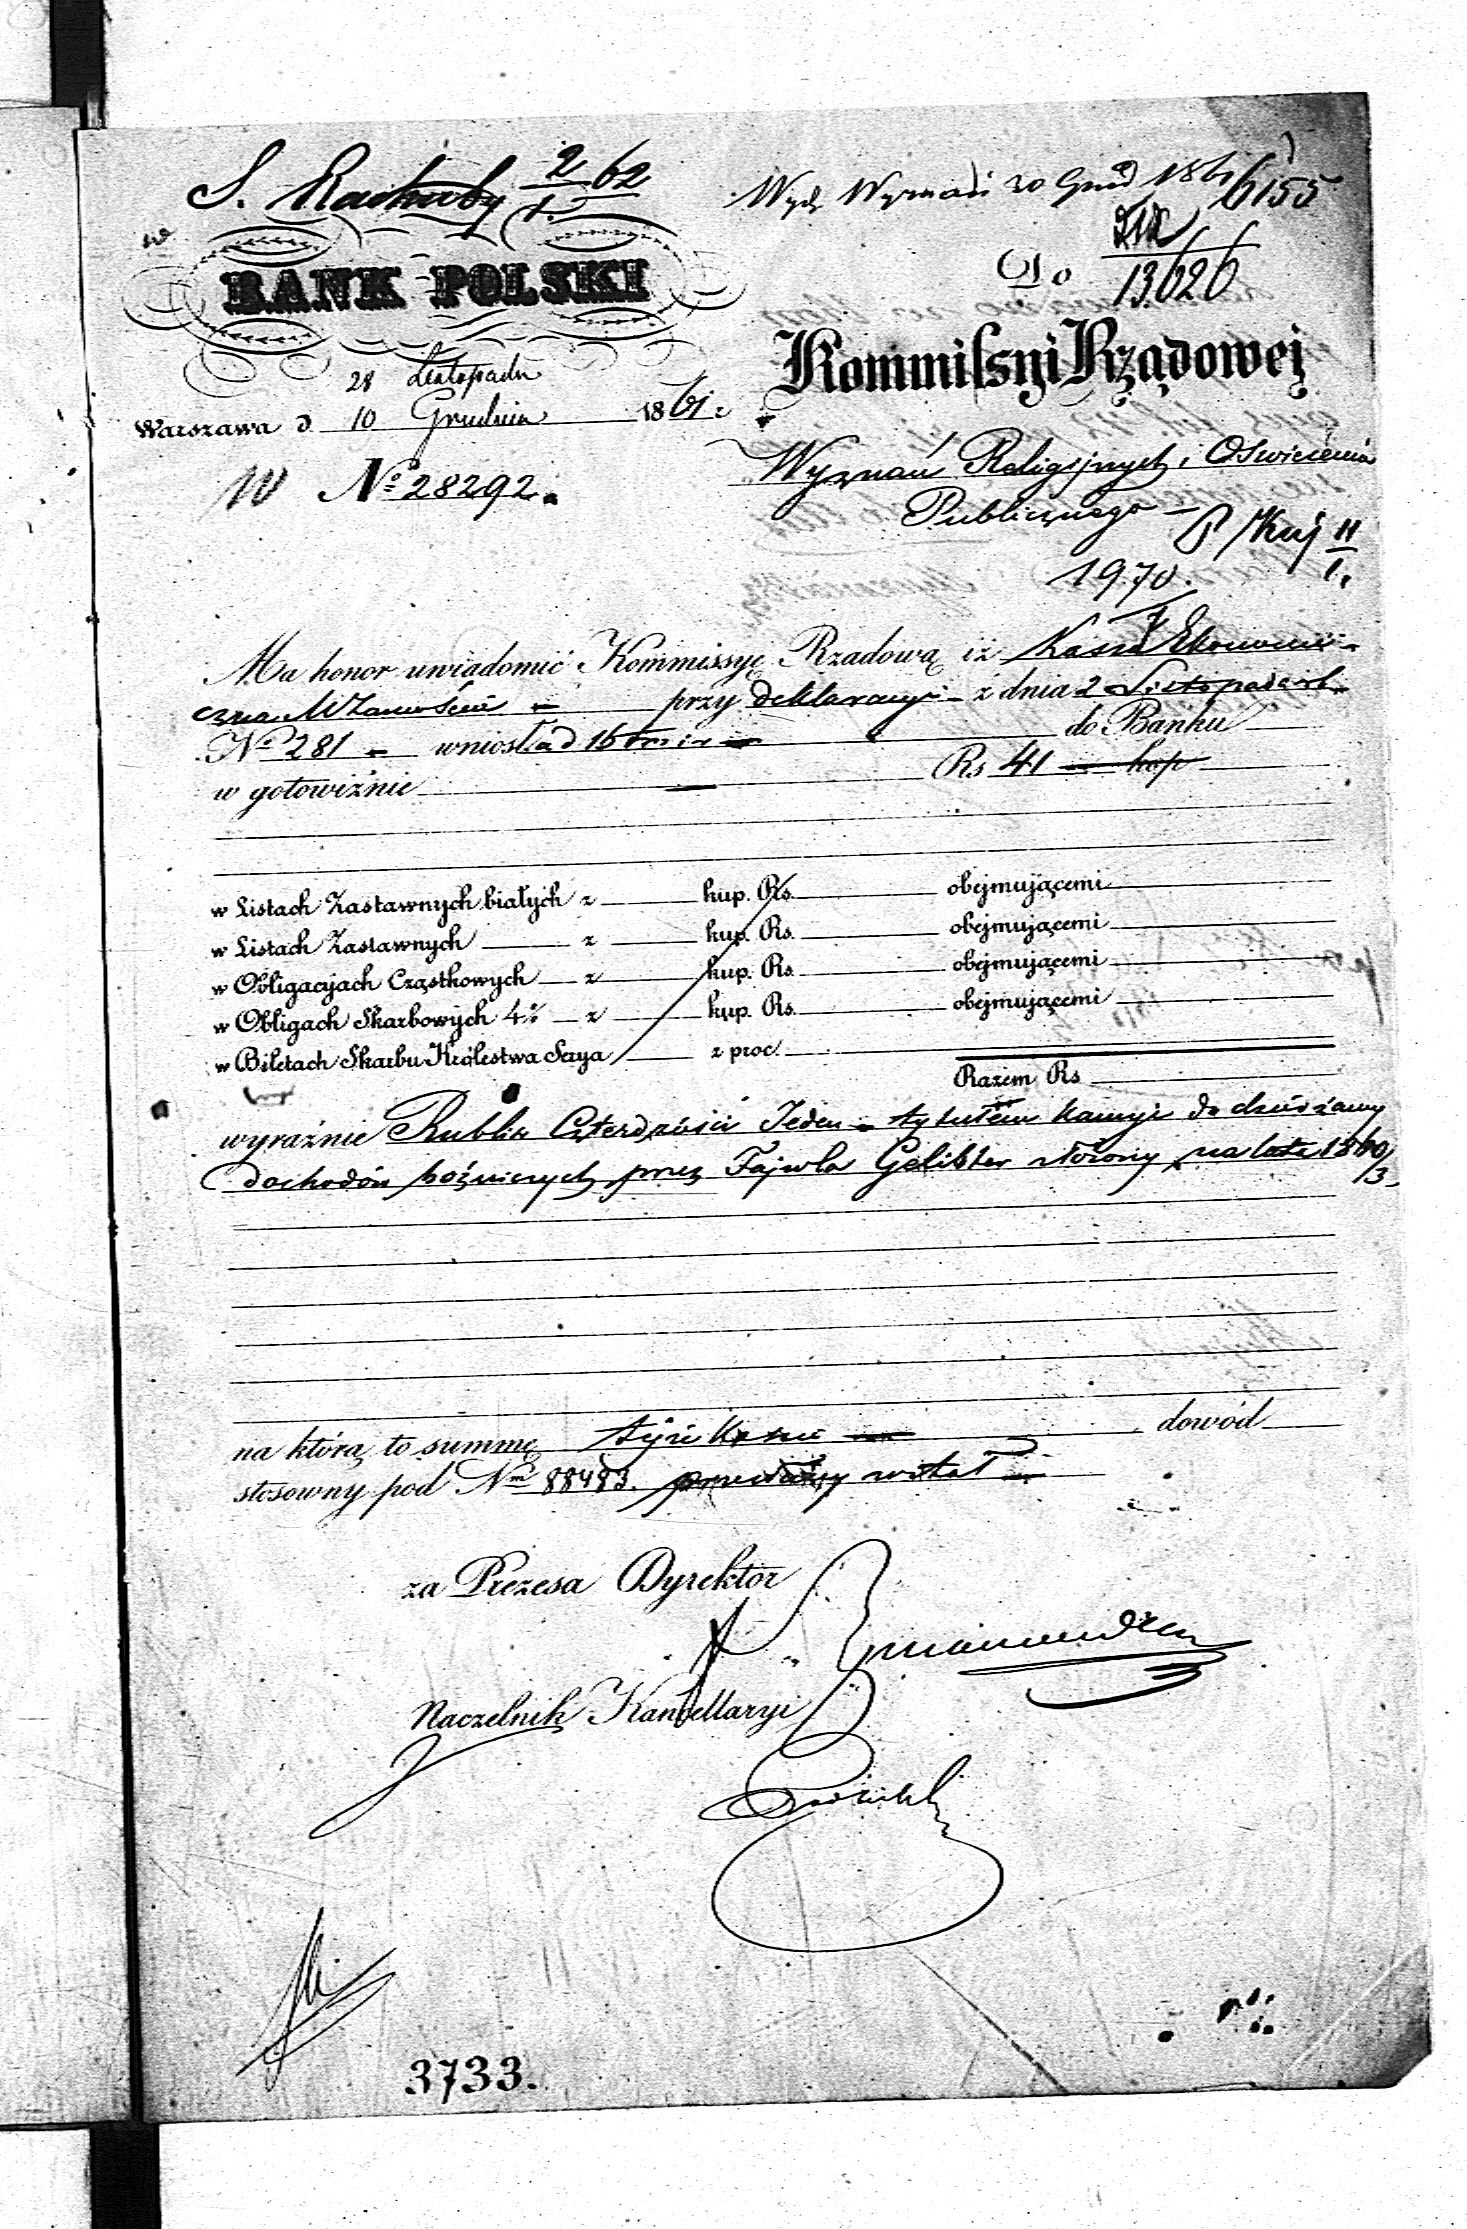 S. Rachuby 2/1. 62
Wydz Wyznań 20 Grud 1861
6155
BANK POLSKI
Do
13626
Kommissyi Rządowej
28 Listopada
Warszawa d. 10 Grudnia 1861 r.
Wyznań Religijnych i Oświecenia
W No 28292.
Publicznego
II
1970.
I.
Ma honor uwiadomić Kommissyę Rządową iż Kassa Ekonomi-
czna M Zamościa przy deklaracyi z dnia 2 Listopada rb.
No 281 wniosła d 16 do Banku
w gotowiźnie Rs 41 kop
w Listach Zastawnych białych z kup. Rs. obejmującemi
w Listach Zastawnych z kup. Rs. obejmującemi
w Obligacyach Cząstkowych z kup. Rs. obejmującemi
w Obligach Skarbowych 4% z kup. Rs. obejmującemi
w Biletach Skarbu Królestwa Serya z proc.
Razem Rs
wyraźnie Rubli Czterdzieści Jeden tytułem kaucyi do dzierżawy
dochodów bóźniczych przez Fajwla Gelibter złożony na lata 1860/3.
na którą to summę tejże Kassie dowód
stosowny pod No 88483. przesłany został
za Prezesa Dyrektor
Naczelnik Kancellaryi
3733.